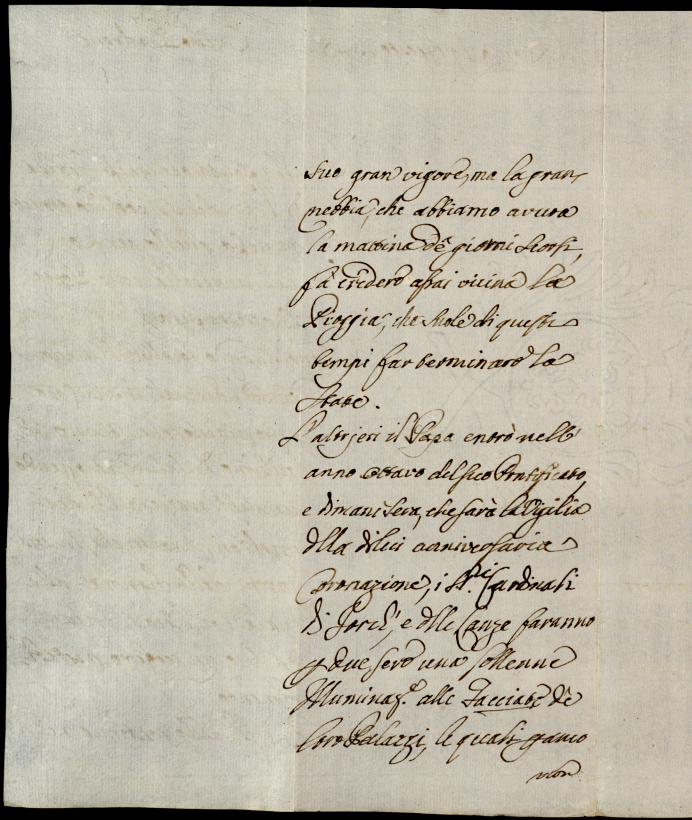 suo gran vigore, ma la gran
nebbia, che abbiamo avuta
la mattina de' giorni scorsi,
fà credere assai vicina la
Pioggia, che suole di questi
tempi far terminare la
State.
L'altrjeri il Papa entrò nell'
anno ottavo del suo Pontificato,
e dimani sera, che sarà la Vigilia
della di lui anniversaria
Coronazione, i SS.ri Cardinali
di Jorch, e delle Lanze faranno
p due sere una sollenne
Illuminaz.e alle Facciate de
loro Palazzi, le quali